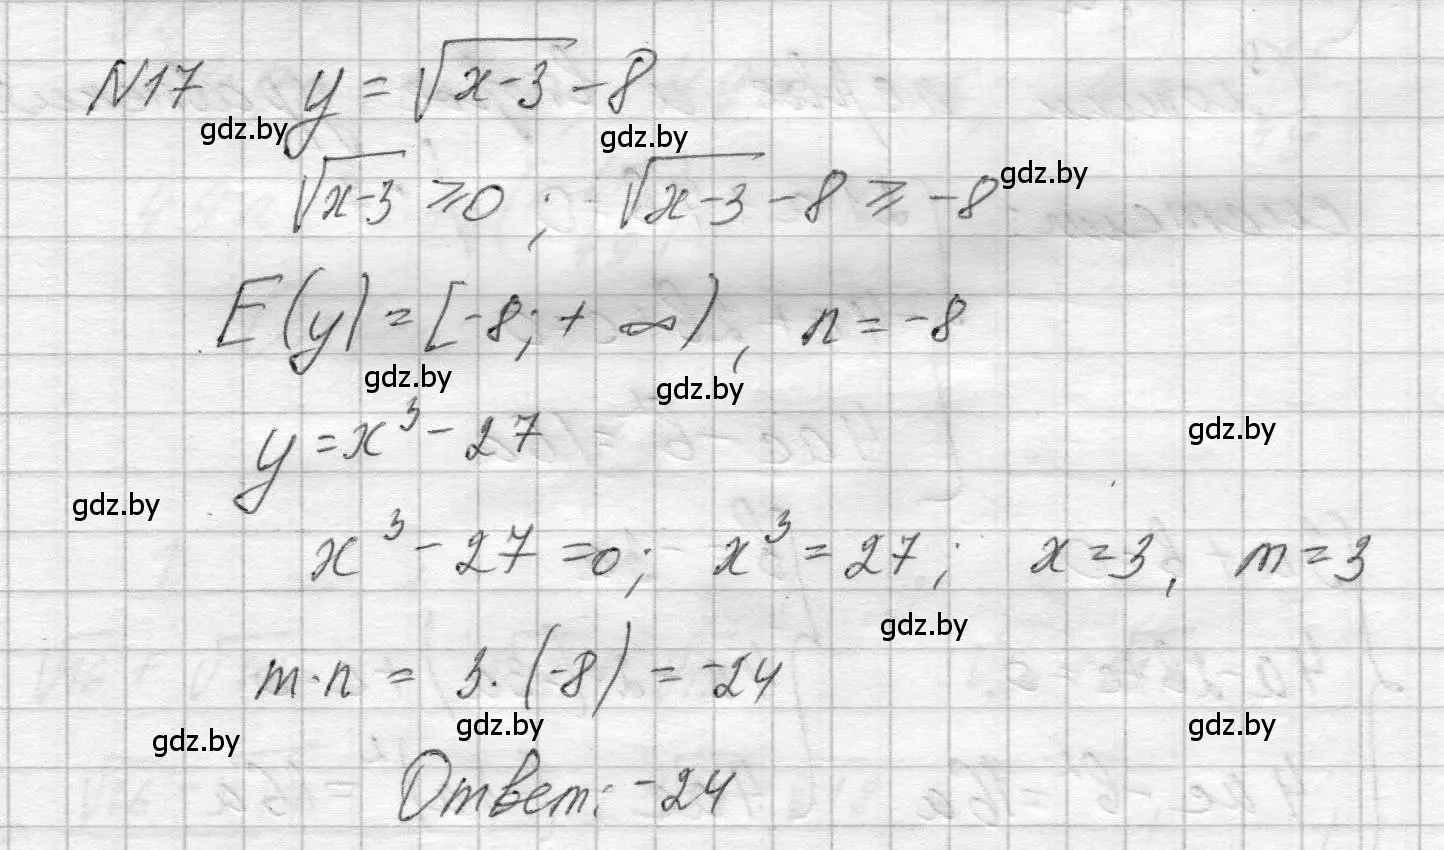 N17 y = √(x-3) - 8
gdz.by gdz.by
√(x-3) ⩾ 0 ; √(x-3) - 8 ⩾ -8 gdz.by
E(y) = [-8; + ∞) , n = -8
gdz.by gdz.by
y = x³ - 27 gdz.by
gdz.by
x³ - 27 = 0; x³ = 27 ; x = 3, m = 3
gdz.by
m·n = 3·(-8) = -24
gdz.by gdz.by gdz.by
Ответ: -24